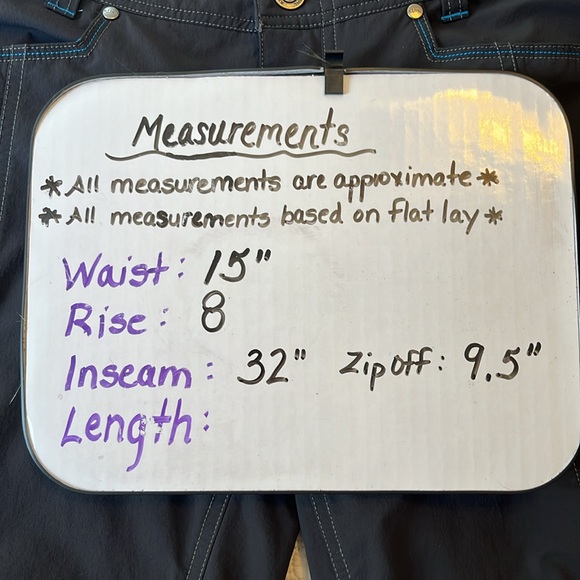 Measurements
*All measurements are approximate*
*All measurements based on flat lay*
Waist: 15"
Rise: 8
Inseam: 32" Zip off: 9.5"
Length: